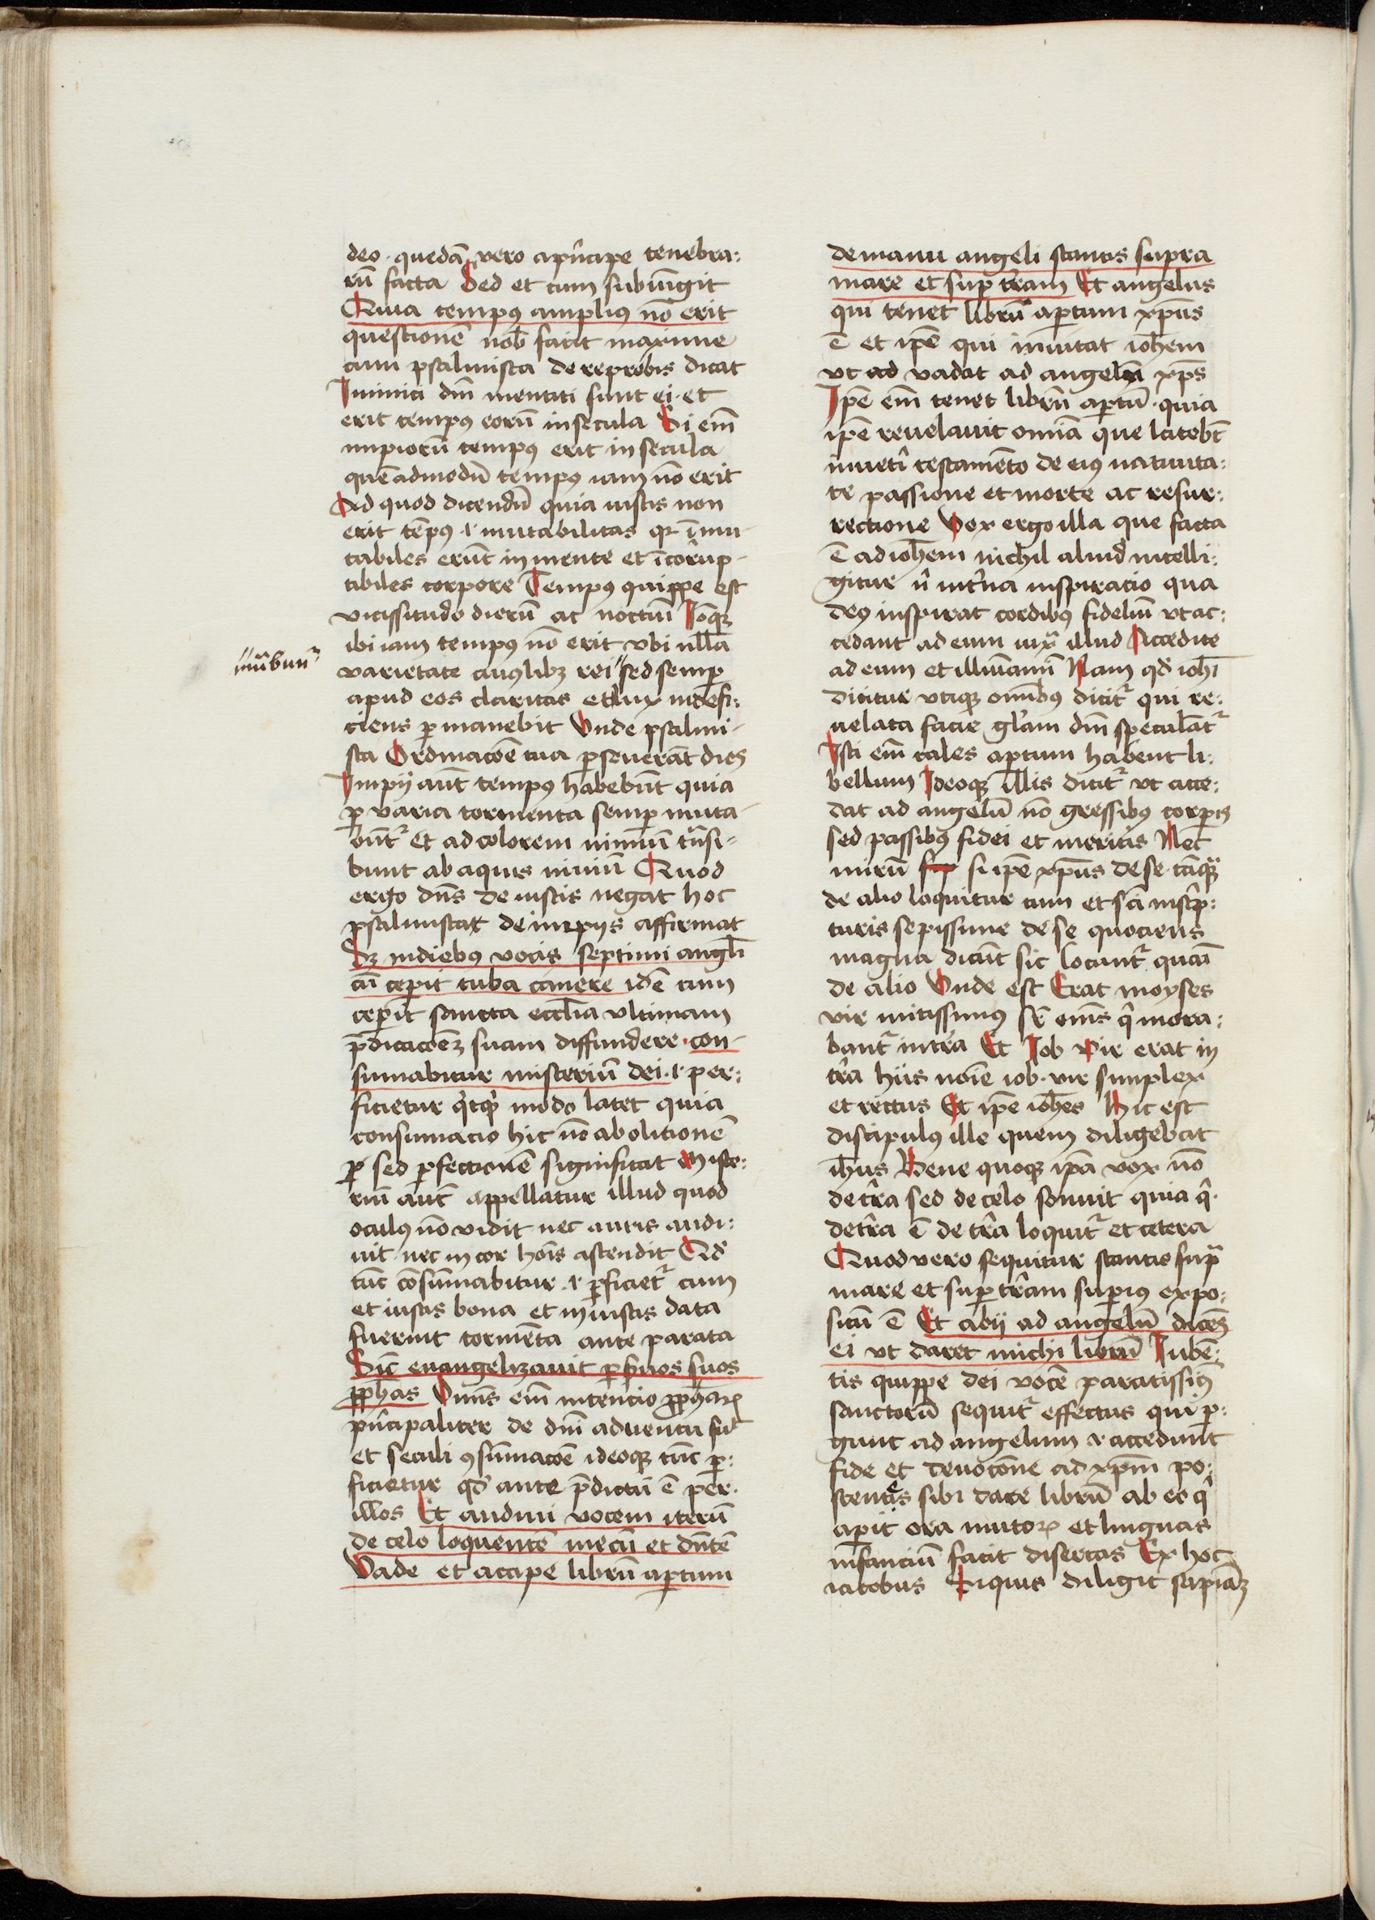 deo · quedā vero a pͥncipe tenebra:
rū facta Sed et cum subiūgit
Quia tempꝰ amplius nō erit
questionē nob̄ facit maxime
cum psalmista de reprobis dicat
Inimici dn̄i mentiti sunt ei · et
erit tempꝰ eorū in secula Si em̄
impiorū tempꝰ erit in secula
quēadmodū tempꝰ iam nō erit
Ad quod dicendū quia iustis non
erit tēpꝰ ⁊ mutabilitas qꝛ īmu
tabiles erūt in mente et īcorrup-
tibiles corpore Tempꝰ quippe est
vicissitudo dierū ac noctiū
ibi iam tempꝰ nō erit vbi nll̄a
mutabunt᷑
varietate cuiꝰlibꝫ rei // sed semꝑ
apud eos claritas et lux indefi:
ciens ꝑmanebit Vnde psalmi-
sta Ordinacōe tua ꝑseuerāt dies
Impij aūt tempꝰ habebūt quia
ꝑ varia tormenta semꝑ muta-
būnt᷑ Et ad calorem nimiū trāsi-
bunt ab aquis niuiū Quod
ergo dn̄s de iustis negat hoc
psalmista de impijs affirmat
Sꝫ in diebus vocis septimi angl̄i
cū ceperit tuba canere idē cum
ceperit sancta eccl̄ia vltimam
p̄dicacōeꝫ suam diffundere · con-
sumabitur misteriū dei · ⁊ per:
ficietur modo latet quia
consumacio hic nō abolitionē
ꝑ sed ꝑfectionē significat Miste:
riū aut̄ appellatur illud quod
oculꝰ nō vidit nec auris audi:
uit nec in cor hoīs ascendit Qd̄
tūc cōsūmabitur · ⁊ ꝑficiet᷑ cum
et iustis bona et iniustis data
fuerint tormēta ante parata
Sic̄ euangelizauit ꝑ seruos suos
ꝓphas Omīs em̄ intencio ꝓphaꝝ
pͥncipaliter de dn̄i aduentu fuit
et seculi ꝯsūmacōe ideoqꝫ tūc ꝑ:
ficietur qd̄ ante p̄dictū ē per
illos Et audiui vocem iterū
de celo loquentē mecū et dicntē
Vade et accipe librū aꝑtum
de manu angeli stantis supra
mare et suꝑ terram Et angelus
qui tenet librū aꝑtum xp̄us
ē et ip̄e qui inuitat ioh̄em
vt ad vadat ad angelū xp̄s
Ip̄e em̄ tenet librū aꝑtū · quia
ip̄e reuelauit om̄ia que latebāt
in ueti testamēto de eiꝰ natiuita:
te passione et morte ac resur:
rectione Vox ergo illa que facta
ē ad ioh̄em nichil aliud intelli:
gitur nͥ int̄na inspiracio qua
deꝰ inspirat cordibus fideliū vt ac:
cedant ad eum iuxͣ illud Accedite
ad eum et illūiamī Nam qd̄ ioh̄i
dicitur vtiqꝫ om̄ibus dicit᷑ qui re:
uelata facie gl̄am dn̄i speculāt᷑
Isti em̄ tales aꝑtum habent li:
bellum Ideoqꝫ illis dicit᷑ vt acce:
dat ad angelū nō gressibꝰ corporis
sed passibꝰ fidei et meritis Nec
mirū sup si ip̄e xp̄us de se tāqͣꝫ
de alio loquitur cum et sc̄i in scͥp:
turis sepissime de se quociens
magna dicūt sic locunt᷑ quasi
de alio Vnde est Erat moyses
vir mitissimꝰ sr̄ om̄s qͥ mora:
bant᷑ in terra Et Iob Vir erat in
terra hus noīe iob · vir simplex
et rectus Et ip̄e ioh̄es Hic est
discipulꝰ ille quem diligebat
ih̄us Bene quoqꝫ ip̄a vox nō
de terra sed de celo sonuit quia qͥ
de terra ē de terra loquit᷑ et cetera
Quod vero sequitur stantis supͣ
mare et suꝑ terram suꝑius expo:
situ ē Et abij ad angelū dicēs
ei vt daret michi librū Iubē:
tis quippe dei vocē paratissiꝰ
sanctorū sequit᷑ effectus qui ꝑ:
gunt ad angelum ⁊ accedunt
fide et deuotōne ad xp̄m po:
stentes sibi dare librū ab eo qͥ
aꝑit ora mutoꝝ et linguas
infanciū facit disertas Ex hoc
iacobus Si quis diligit sapiāꝫ